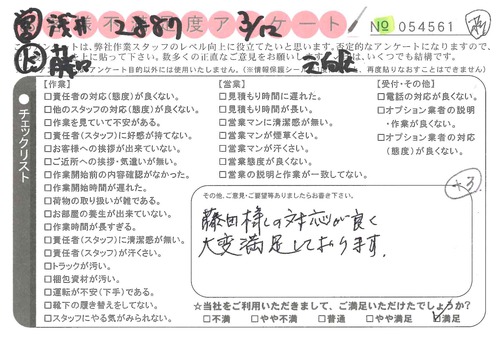 営 浅井 2887 3/12
お客様不満足度アンケート
No 054561
アンケートは、弊社作業スタッフのレベル向上に役立てたいと思います。否定的なアンケートになりますので、
上に貼って下さい。数多くの正直なご意見をお願いします。いつでも結構です。
アンケート目的以外には使用いたしません。(※情報保護シール 再度貼りなおすことはできません)
チェックリスト
【作業】
□責任者の対応(態度)が良くない。
□他のスタッフの対応(態度)が良くない。
□作業を見ていて不安がある。
□責任者(スタッフ)に好感が持てない。
□お客様への挨拶が出来ていない。
□ご近所への挨拶・気遣いが無い。
□作業開始前の内容確認がなかった。
□作業開始時間が遅れた。
□荷物の取り扱いが雑である。
□お部屋の養生が出来ていない。
□作業時間が長すぎる。
□責任者(スタッフ)に清潔感が無い。
□責任者(スタッフ)が汗くさい。
□トラックが汚い。
□梱包資材が汚い。
□運転が不安(下手)である。
□靴下の履き替えをしてない。
□スタッフにやる気がみられない。
【営業】
□見積もり時間に遅れた。
□見積もり時間が長い。
□営業マンに清潔感が無い。
□営業マンが煙草くさい。
□営業マンが汗くさい。
□営業態度が良くない。
□営業の説明と作業が一致してない。
【受付・その他】
□電話の対応が良くない。
□オプション業者の説明
・作業が良くない。
□オプション業者の対応
(態度)が良くない。
+3
その他、ご意見・ご要望等ありましたらお書き下さい。
藤田様の対応が良く
大変満足しております。
☆当社をご利用いただきまして、ご満足いただけたでしょうか?
□不満 □やや不満 □普通 □やや満足 ☑満足